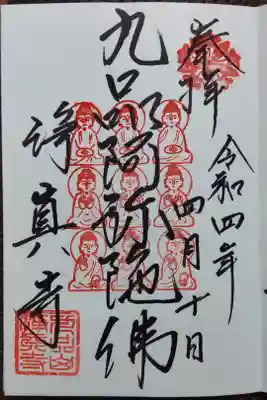 奉拝
令和四年
四月十日
九品阿弥陀佛
浄真寺